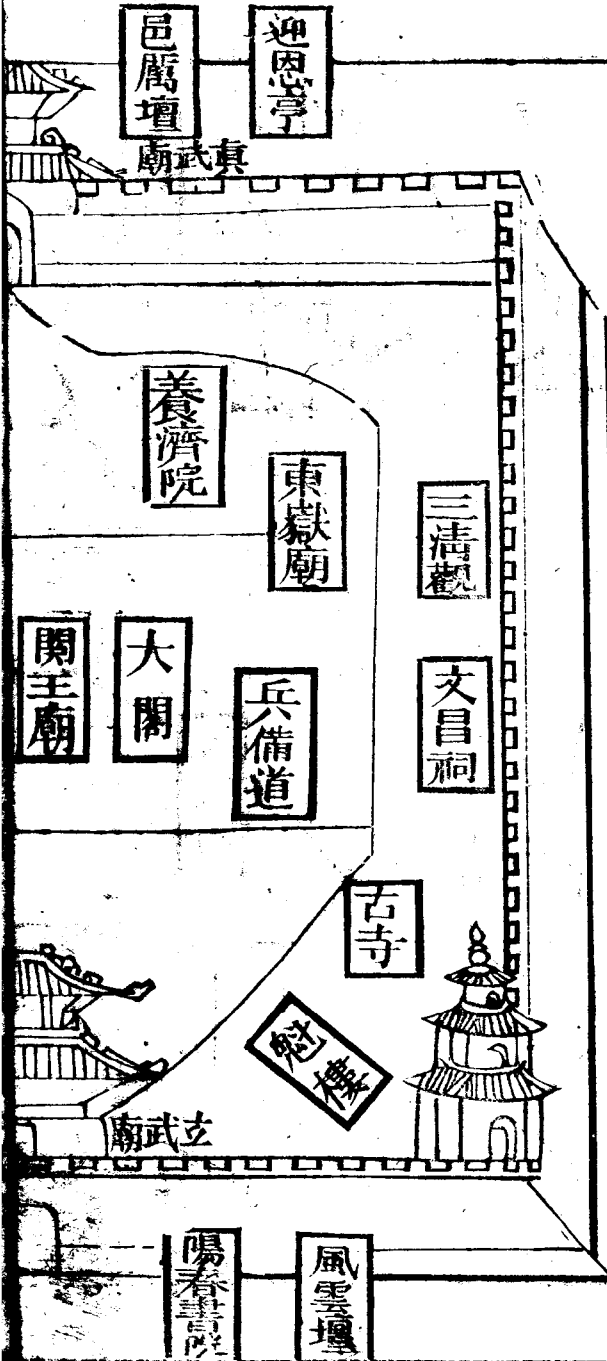 迎恩亭
邑厲壇
真武廟
養濟院
東嶽廟
三清觀
關王廟
大閣
兵備道
文昌祠
古寺
魁樓
立武廟
陽春書院
風雲壇